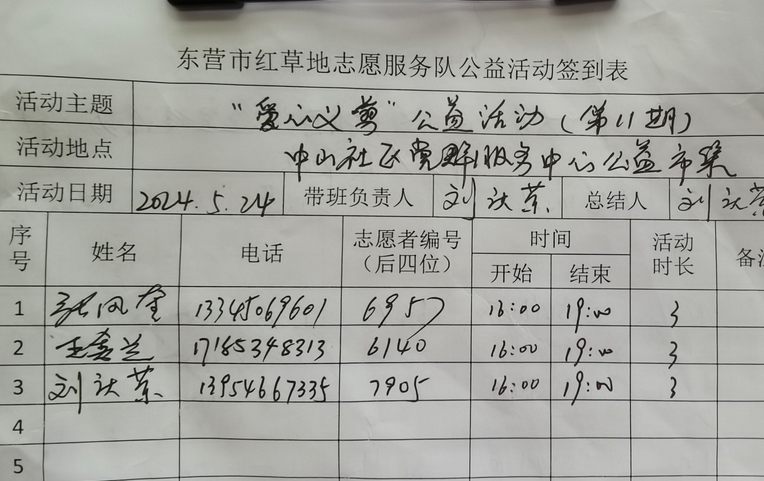 东营市红草地志愿服务队公益活动签到表
活动主题 "爱心义剪"公益活动(第11期)
活动地点 中山社区党群服务中心公益市集
活动日期 2024.5.24 带班负责人 刘跃荣 总结人 刘跃荣
序号 姓名 电话 志愿者编号(后四位) 时间 开始 结束 活动时长 备
1 张凤奎 13345069601 6957 16:00 19:00 3
2 王秀兰 17185348313 6140 16:00 19:00 3
3 刘跃荣 13954667335 7905 16:00 19:00 3
4
5